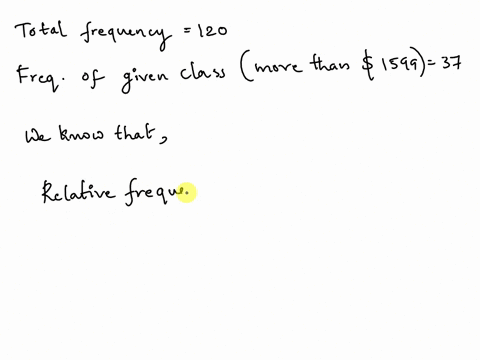 Total frequency = 120
Freq. of given class (more than $ 1599) = 37
We know that,
Relative freque